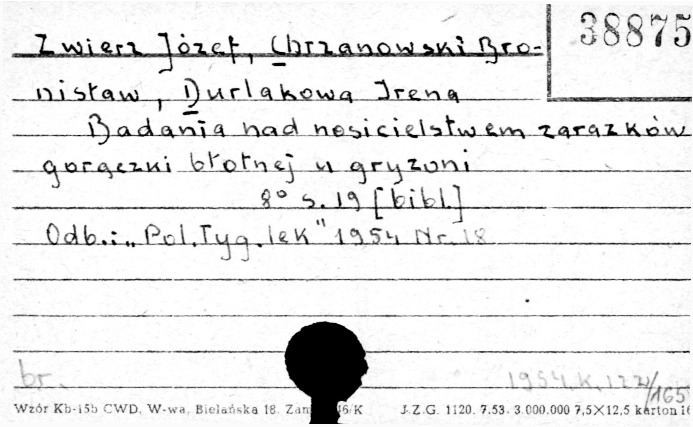 38875
Zwierz Józef, Chrzanowski Bro-
nisław, Durlakowa Irena
Badania nad nosicielstwem zarazków
gorączki błotnej u gryzoni
8° s. 19 [bibl.]
Odb.: „Pol. Tyg. lek" 1954 Nr. 18
br.
1954.K.122/165
Wzór Kb-15b CWD, W-wa, Bielańska 18. Zam 46/K J.Z.G. 1120. 7.53. 3.000.000 7,5×12,5 karton